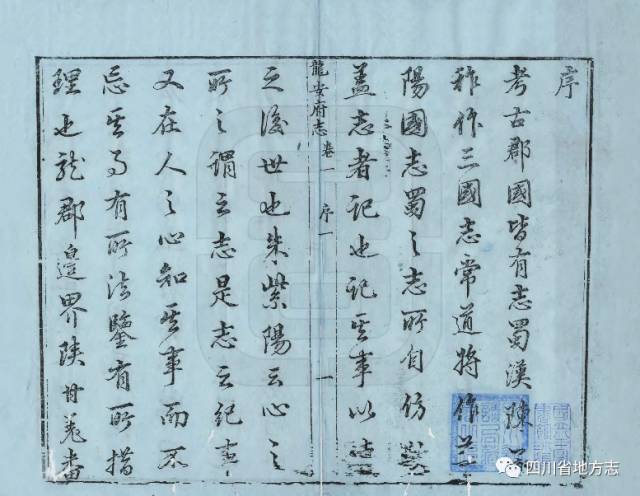 序
考古郡國皆有志蜀漢陳
祚作三國志常道將作
陽國志蜀之志所自仿
蓋志者記也記其事以
之後世也朱紫陽云心之
所之謂之志是志之紀事
又在人之心知其事而不
忘其局有所法鑒有所措
理也龍郡邊界陝甘羌番
龍安府志 卷一 序 一
一
四川省地方志